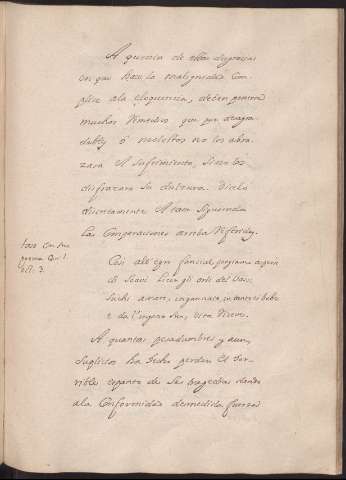 A quenta de estas disgracias
en que hace la malignidad com-
plice a la eloquencia, deben ponerse
muchos remedios que por desagra-
dables ó molestos no los abra-
zara el sufrimiento, si no los
disfrazara su dulzura. Dixolo
diuinamente el Taso siguiendo
las comparaciones arriba referidas.
Taso en su
poema Cant. 1
est. 3.
Cosi all' egro fanciul, porgiamo aspersi
di soavi licor gli orli del vaso,
succhi amari, ingannato, intanto ei beve
e da l'inganno suo, vita riceve.
A quantas pesadumbres y aun,
suplicios ha hecho perder el ter-
rible espanto de sus tragedias dando
a la conformidad desmedida fuerza